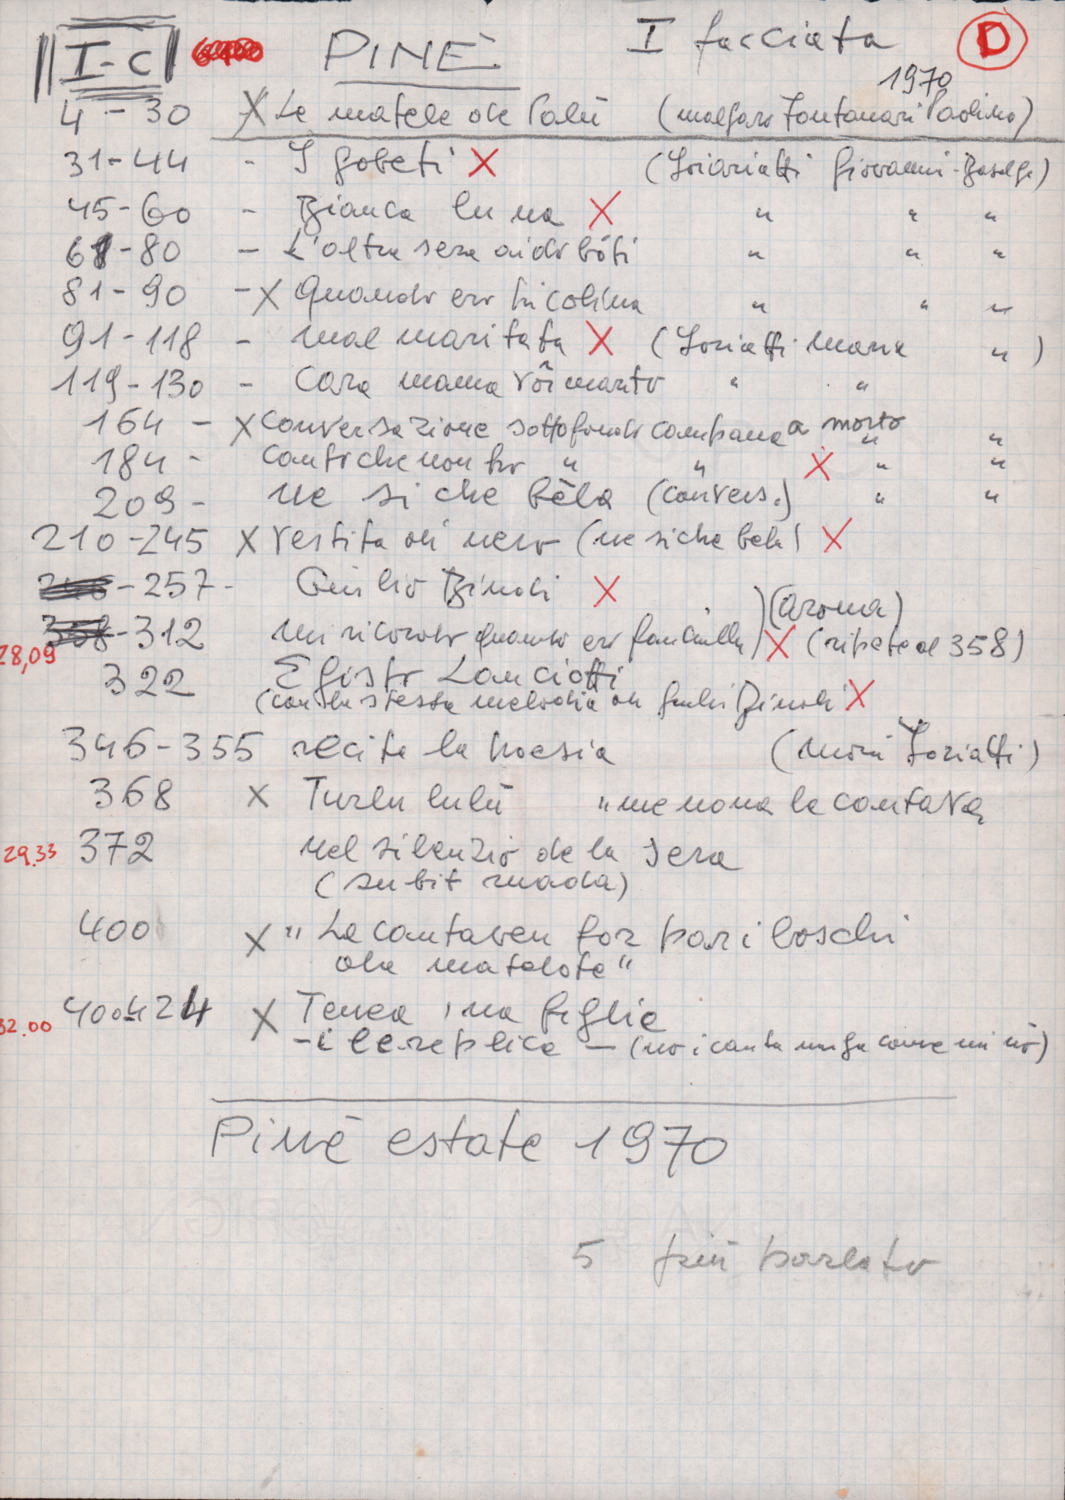 I-c PINÈ I facciata D
1970
4-30 X Le matele de Palù (malgaro Fontanari Paolino)
31-44 - I gobeti X (Ioriatti Giovanni-Baselga)
45-60 - Bianca luna X " " "
61-80 - L'altra sera " " "
81-90 - X Quando ero picolina " " "
91-118 - mal maritata X (Ioriatti Maria " )
119-130 - Cara mama vòi marito " "
164 - X conversazione sottofondo campana a morto " "
184 - " " X " "
209 - Me si che bèla (convers.) " "
210-245 X vestita di nero (me si che bela) X
-257- Giulio Bindi X
(Aroma)
-312 Mi ricordo quando ero fanciulla X (ripete al 358)
28,09
322 Egisto Lanciotti
(con la stessa melodia di Giulio Bindi X
346-355 recita la poesia ( Ioriatti)
368 X Turlu lulù "me nona la cantava
29.33 372 Nel silenzio de la sera
(subit)
400 X "Le cantaven for par i boschi
ale matelote"
32.00 400-424 X Tenea 'na figlia
- e le replica - (no i canta miga come mi nò)
Pinè estate 1970
5 più parlato